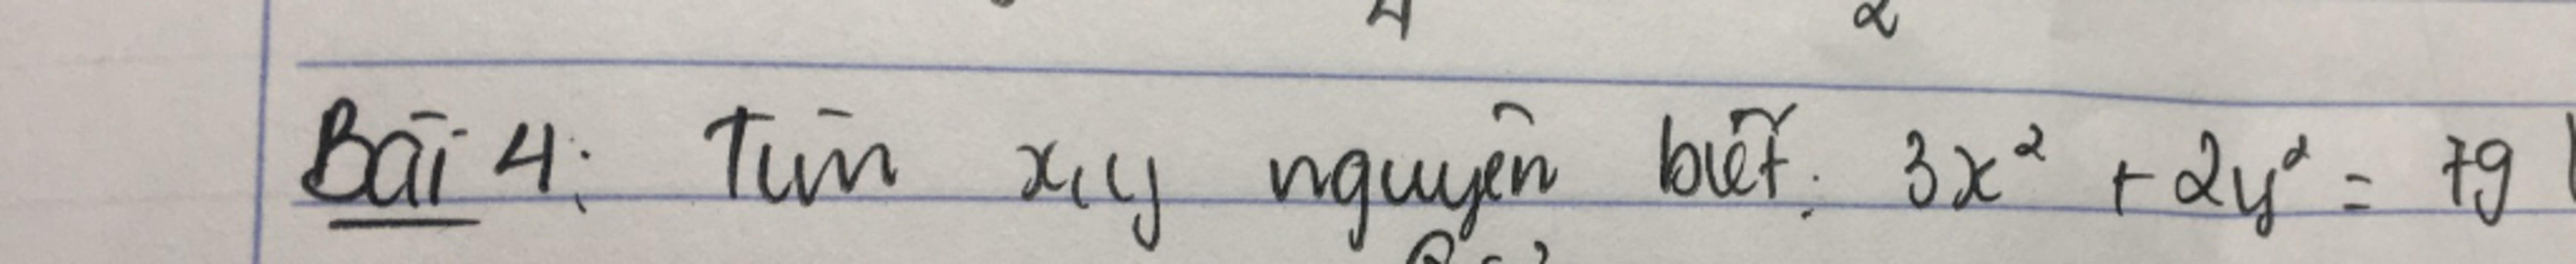 4 2
Bài 4: Tìm x, y nguyên biết: 3x² + 2y² = 79